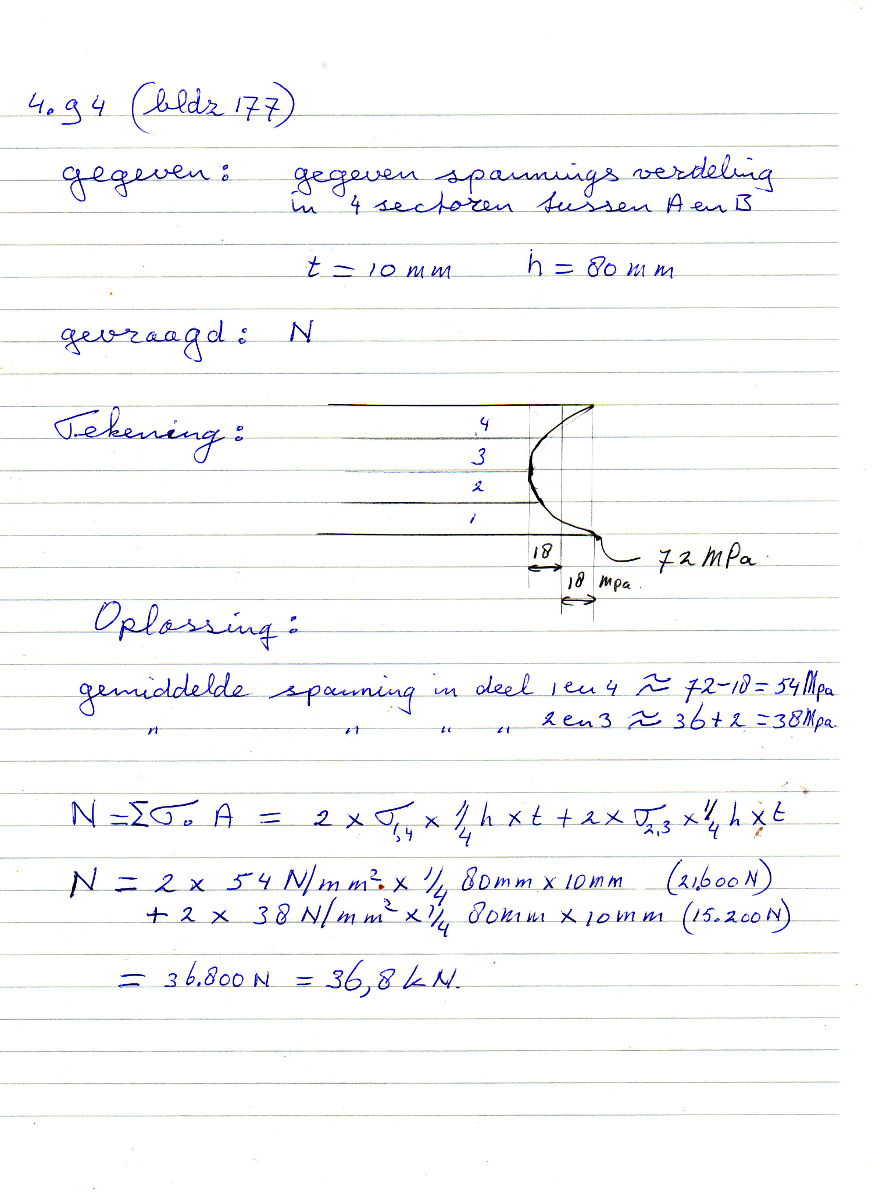 4.94 (bldz 177)
gegeven: gegeven spannings verdeling
in 4 sectoren tussen A en B
t = 10 mm h = 80 mm
gevraagd: N
Tekening:
4
3
2
1
18
72 MPa
18 mpa.
Oplossing:
gemiddelde spanning in deel 1 en 4 ≈ 72-18 = 54 Mpa
" " " " 2 en 3 ≈ 36+2 = 38 Mpa.
N = Σσ. A = 2 x σ1,4 x 1/4 h x t + 2 x σ2,3 x 1/4 h x t
N = 2 x 54 N/mm² x 1/4 80mm x 10mm (21.600 N)
+ 2 x 38 N/mm² x 1/4 80mm x 10mm (15.200N)
= 36.800 N = 36,8 kN.